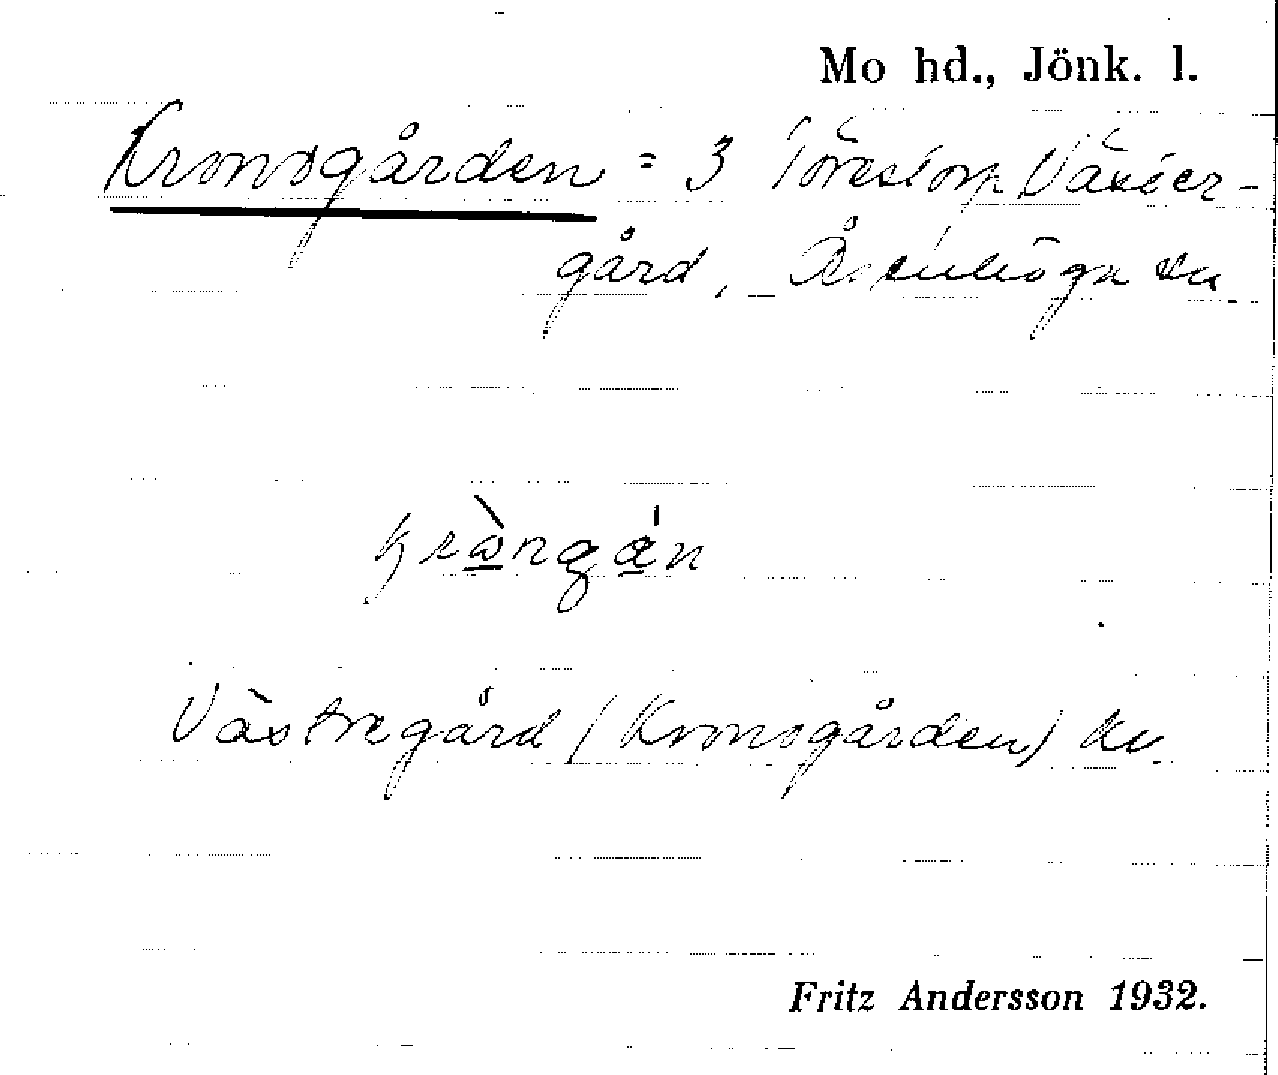 Mo hd., Jönk. l.
Kronogården = 3 Törestorp Väster-
gård, Åsenhöga sn
Västregård (Kronogården) kv.
Fritz Andersson 1932.